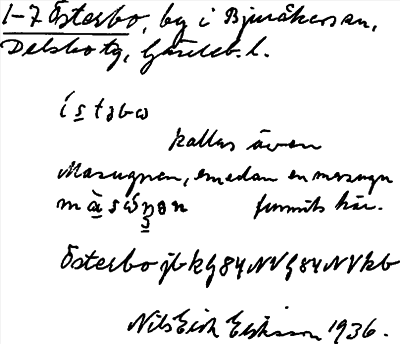 1-7 Österbo, by i Bjuråkers sn,
Delsbo tg, Gävleb. l.
ístəbω
kallas även
Masugnen, emedan en masugn
funnits här.
Österbo jb kg 84 NV G 84 NV kb
Nils Eirik Eriksson 1936.